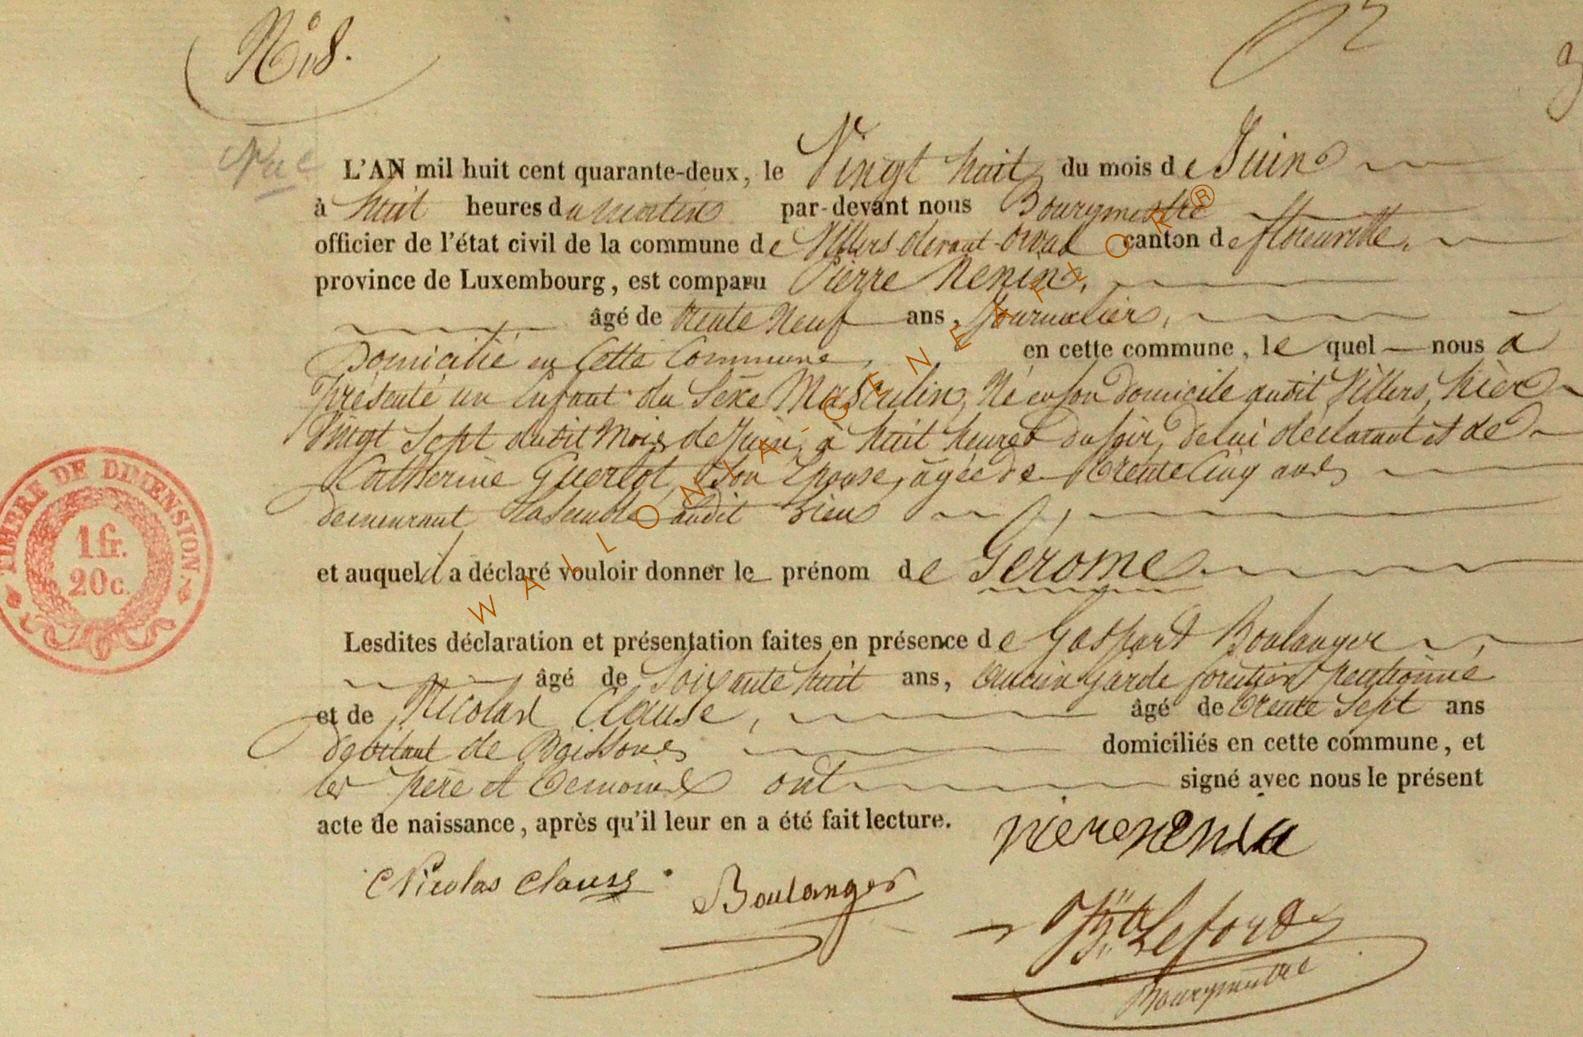 N° 18.
L'AN mil huit cent quarante-deux, le Vingt huit du mois de Juin
à huit heures du matin par-devant nous Bourgmestre
officier de l'état civil de la commune de Villers devant Orval canton de florenville,
province de Luxembourg, est comparu Pierre Nenin,
âgé de trente Neuf ans, Journalier,
Domicilié en Cette Commune, en cette commune, le quel nous a
présenté un Enfant du Sexe Masculin, Né en son Domicile audit Villers, hier
vingt Sept dudit Mois de Juin, à huit heures du soir, de lui déclarant et de
Catherine Guerlot, Son Epouse, agée de trente Cinq ans
demeurant Ensemble audit Lieu
et auquel il a déclaré vouloir donner le prénom de Gérome
Lesdites déclaration et présentation faites en présence de Gaspard Boulanger,
âgé de Soixante huit ans, ancien Garde forestier pensionné
et de Nicolas Clause, âgé de trente Sept ans
debitant de Boissons domiciliés en cette commune, et
les père et temoins ont signé avec nous le présent
acte de naissance, après qu'il leur en a été fait lecture.
pierenenin
Nicolas Clause Boulanger
Lefort
Bourgmestre
TIMBRE DE DIMENSION.
1 fr.
20 c.
WALLONIA GENEALOR ®